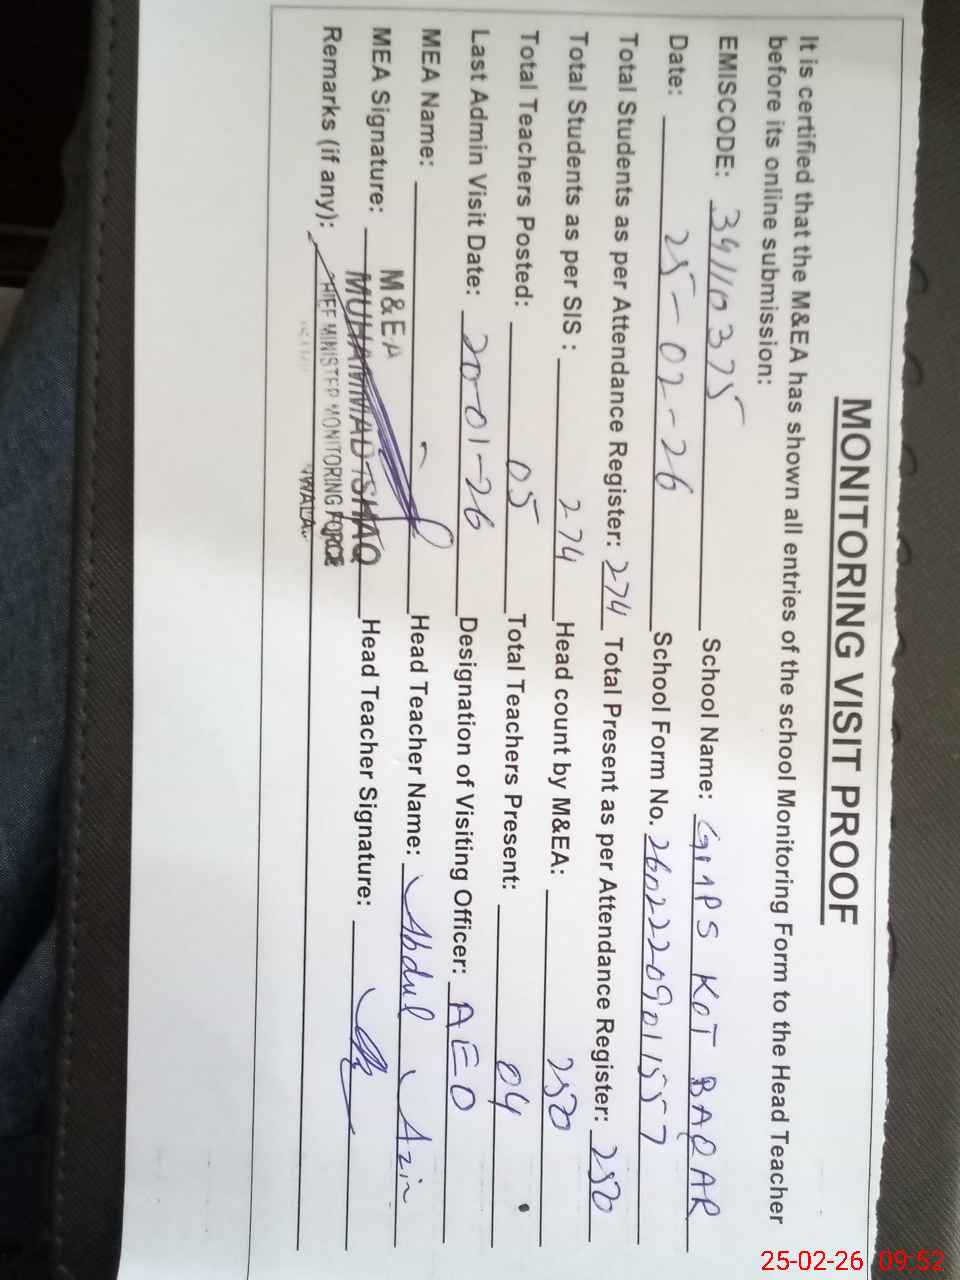 MONITORING VISIT PROOF
It is certified that the M&EA has shown all entries of the school Monitoring Form to the Head Teacher
before its online submission:
EMISCODE: 34110375 School Name: GMPS KOT BAQAR
Date: 25-02-26 School Form No. 2602220901557
Total Students as per Attendance Register: 274 Total Present as per Attendance Register: 250
Total Students as per SIS : 274 Head count by M&EA: 250
Total Teachers Posted: 05 Total Teachers Present: 04
Last Admin Visit Date: 20-01-26 Designation of Visiting Officer: AEO
MEA Name: Head Teacher Name: Abdul
MEA Signature: M&EA Head Teacher Signature:
MUHAMMAD ISHAQ
Remarks (if any): CHIEF MINISTER MONITORING FORCE
25-02-26 09:52